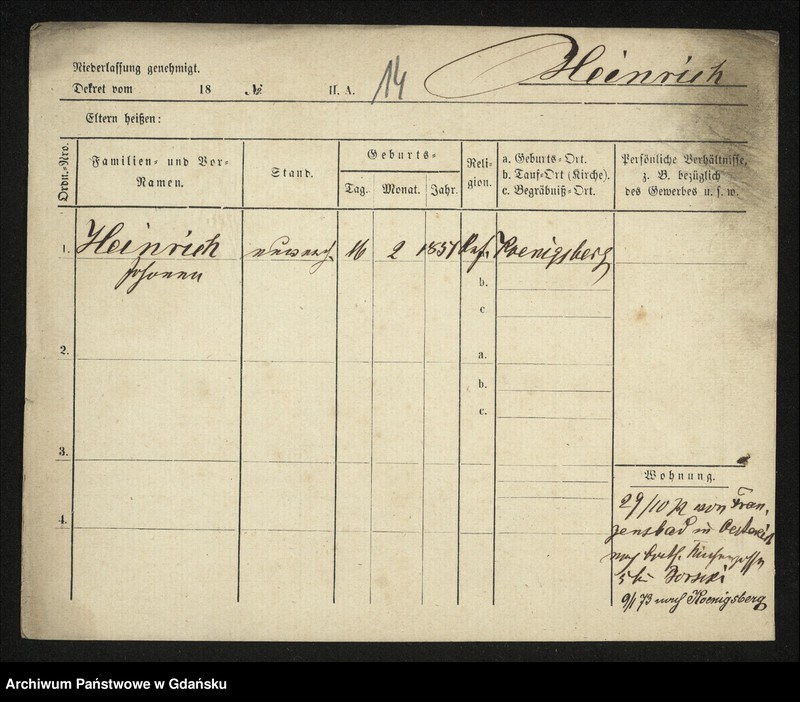 Niederlassung genehmigt.
Dekret vom 18 № II. A. 14
Heinrich
Eltern heißen:
Ordn.-Nro.
Familien- und Vor-
Namen.
Stand.
Geburts-
Tag. Monat. Jahr.
Reli-
gion.
a. Geburts-Ort.
b. Tauf-Ort (Kirche).
c. Begräbniß-Ort.
Persönliche Verhältnisse,
z. B. bezüglich
des Gewerbes u. s. w.
1. Heinrich 16 2 1857 Koenigsberg
Johann
b.
c
2.
a.
b.
c.
3.
4.
Wohnung.
29/10 72 von Fran,
zensbad in
nach
9/1 73 nach Koenigsberg
Archiwum Państwowe w Gdańsku